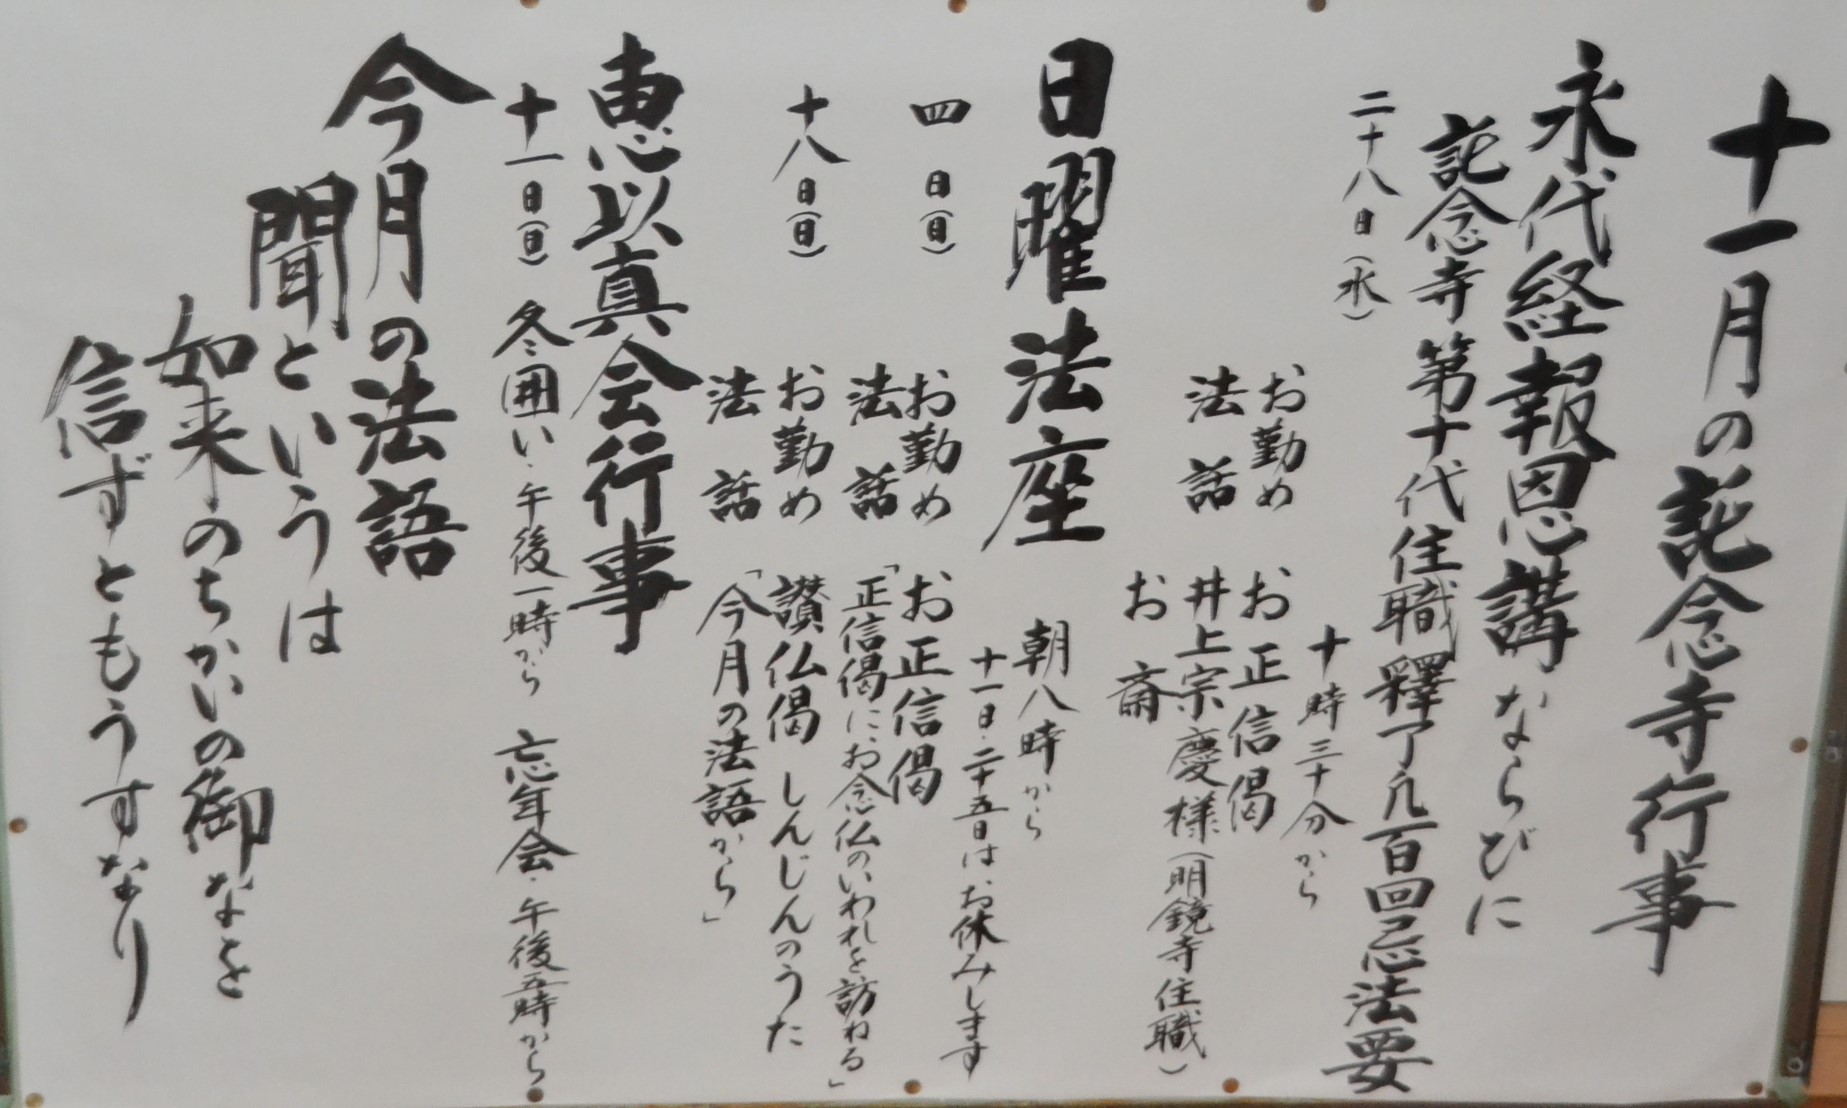 十一月の記念寺行事
永代経報恩講ならびに
記念寺第十代住職釋了几百回忌法要
二十八日(水)
十時三十分から
お勤め お正信偈
法話 井上宗慶様(明鏡寺住職)
お斎
日曜法座
朝八時から
十一日・二十五日はお休みします
四日(日)
お勤め お正信偈
法話 「正信偈にお念仏のいわれを訪ねる」
十八日(日)
お勤め 讃仏偈 しんじんのうた
法話 「今月の法語から」
恵以真会行事
十一日(日) 冬囲い・午後一時から 忘年会・午後五時から
今月の法語
聞というは
如来のちかいの御なを
信ずともうすなり